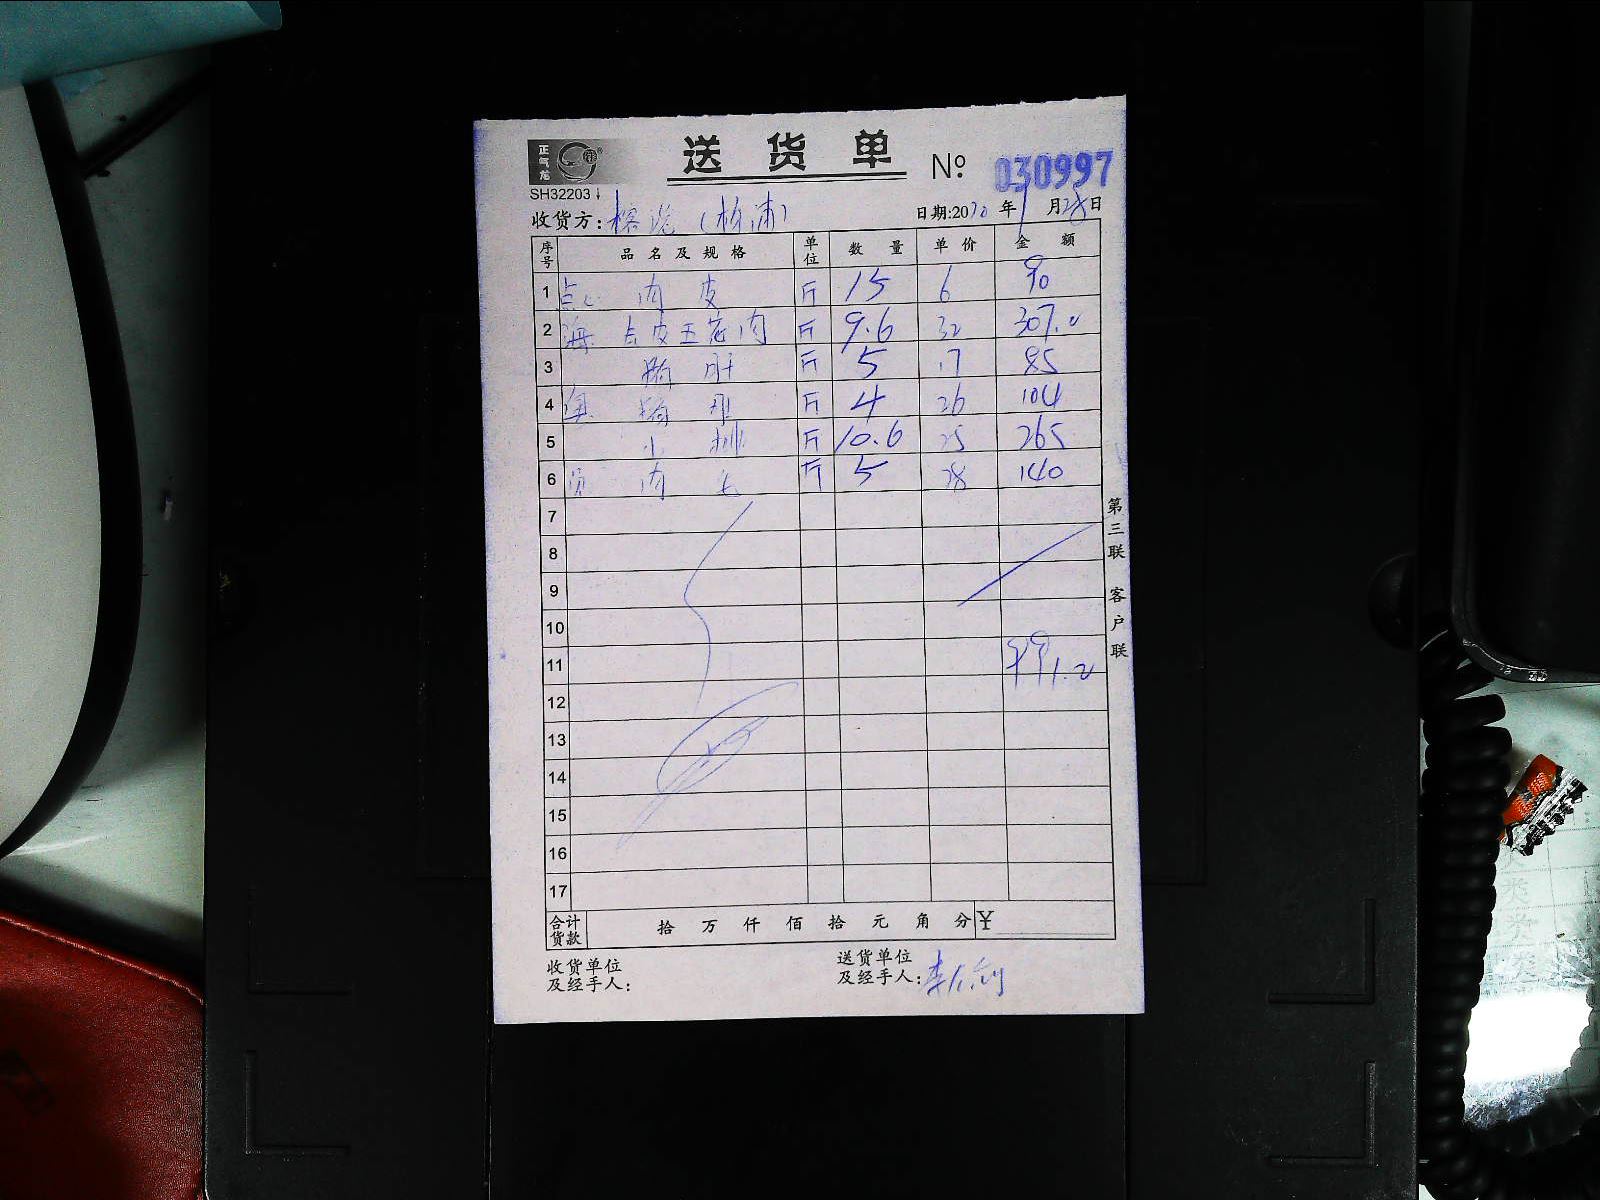 正气龙
送货单 № 030997
SH32203
收货方: (杨浦) 日期:2020年1月28日
序号 品名及规格 单位 数量 单价 金额
1 点心 肉皮 斤 15 6 90
2 海 去皮五花肉 斤 9.6 32 307.2
3 猪肝 斤 5 17 85
4 猪 斤 4 26 104
5 小排 斤 10.6 25 265
6 肉 斤 5 28 140
7
8
9
10
11 991.2
12
13
14
15
16
17
合计货款 拾 万 仟 佰 拾 元 角 分 ¥
收货单位及经手人:
送货单位及经手人: 李
第三联 客户联